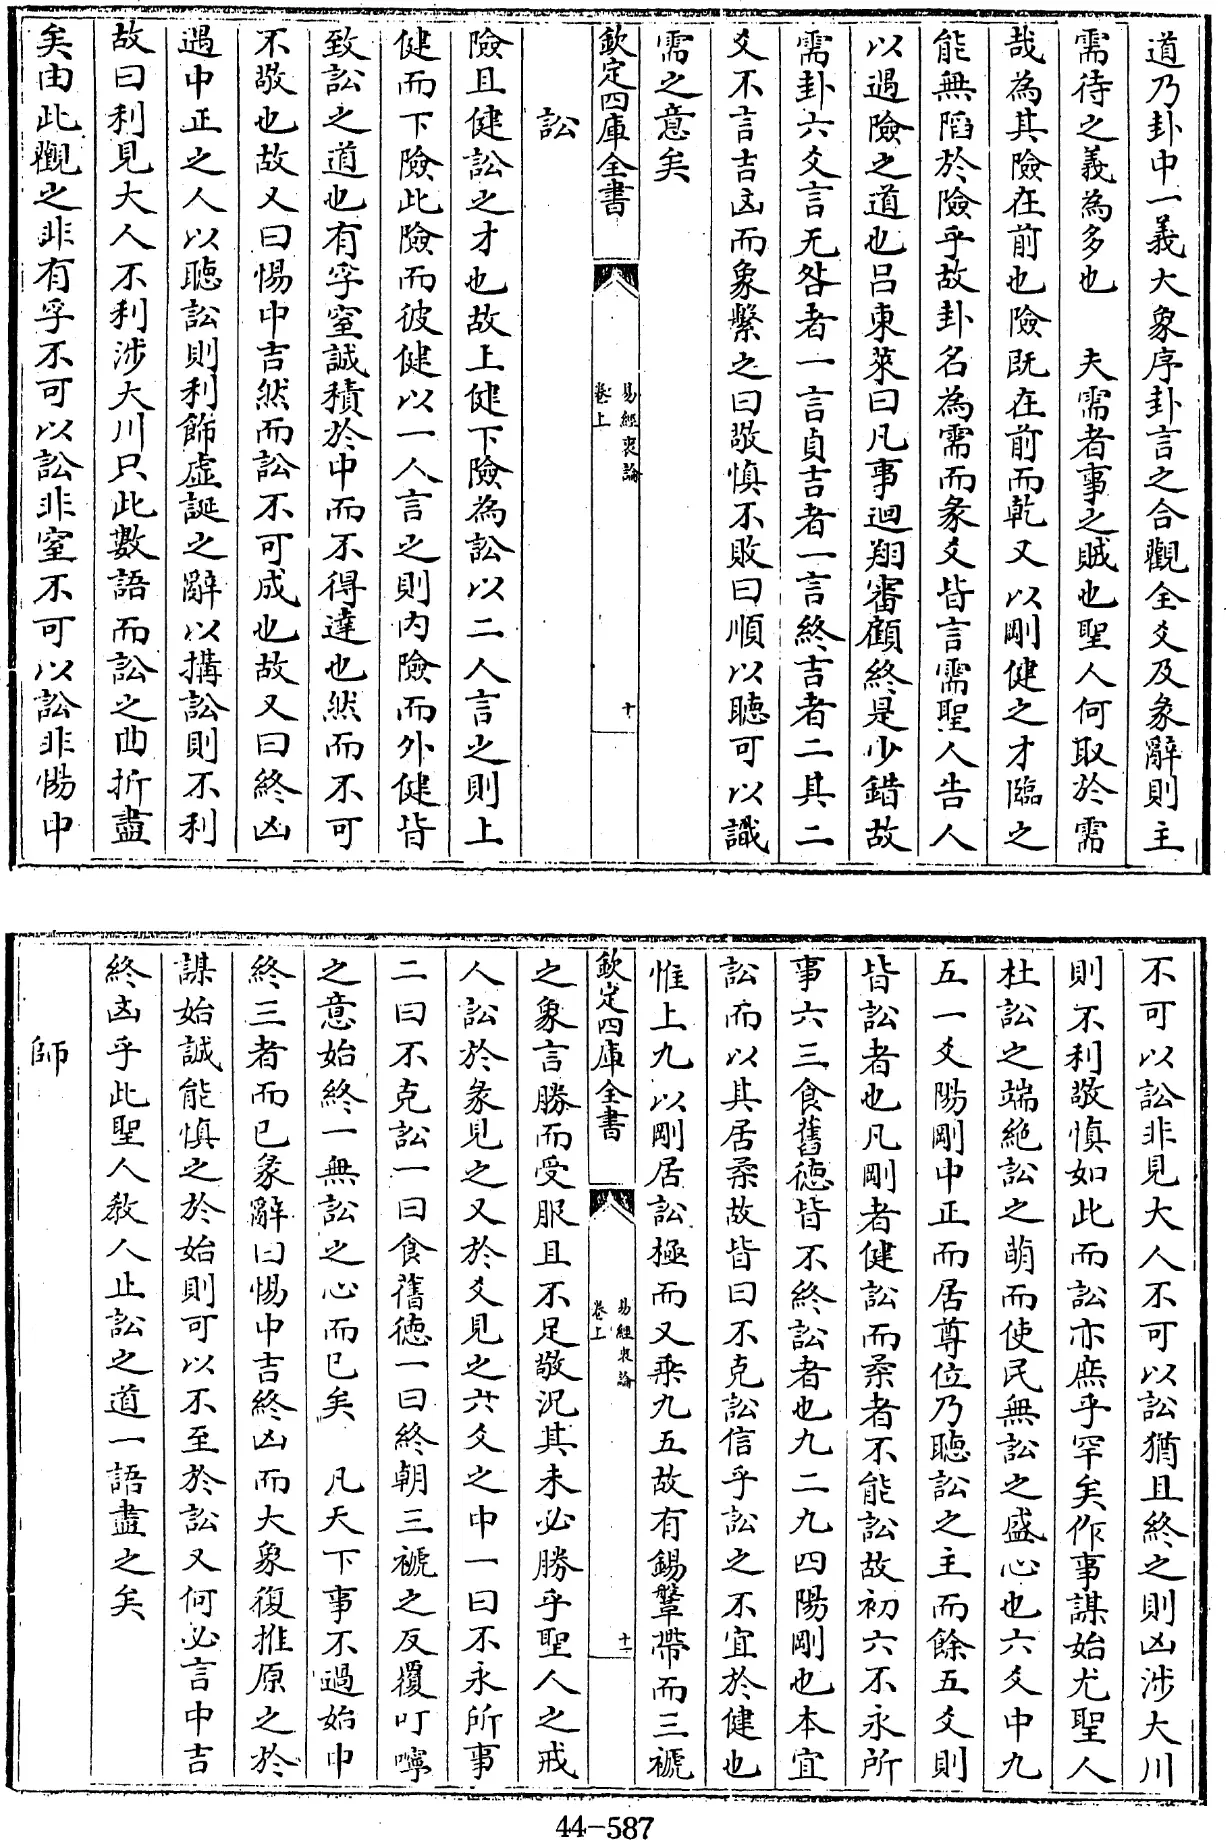 道乃卦中一義大象序卦言之合觀全爻及彖辭則主
需待之義為多也　夫需者事之賊也聖人何取於需
哉為其險在前也險既在前而乾又以剛健之才臨之
能無陷於險乎故卦名為需而彖爻皆言需聖人告人
以遇險之道也呂東萊曰凡事迴翔審顧終是少錯故
需卦六爻言无咎者一言貞吉者一言終吉者二其二
爻不言吉凶而象繫之曰敬慎不敗曰順以聽可以識
需之意矣
欽定四庫全書
易經衷論
卷上
十
訟
險且健訟之才也故上健下險為訟以二人言之則上
健而下險此險而彼健以一人言之則內險而外健皆
致訟之道也有孚窒誠積於中而不得達也然而不可
不敬也故又曰惕中吉然而訟不可成也故又曰終凶
遇中正之人以聽訟則利飾虛誕之辭以搆訟則不利
故曰利見大人不利涉大川只此數語而訟之曲折盡
矣由此觀之非有孚不可以訟非窒不可以訟非惕中
不可以訟非見大人不可以訟猶且終之則凶涉大川
則不利敬慎如此而訟亦庶乎罕矣作事謀始尤聖人
杜訟之端絶訟之萌而使民無訟之盛心也六爻中九
五一爻陽剛中正而居尊位乃聽訟之主而餘五爻則
皆訟者也凡剛者健訟而柔者不能訟故初六不永所
事六三食舊德皆不終訟者也九二九四陽剛也本宜
訟而以其居柔故皆曰不克訟信乎訟之不宜於健也
惟上九以剛居訟極而又乘九五故有錫鞶帶而三褫
欽定四庫全書
易經衷論
卷上
十一
之象言勝而受服且不足敬況其未必勝乎聖人之戒
人訟於彖見之又於爻見之六爻之中一曰不永所事
二曰不克訟一曰食舊德一曰終朝三褫之反覆叮嚀
之意始終一無訟之心而已矣　凡天下事不過始中
終三者而已彖辭曰惕中吉終凶而大象復推原之於
謀始誠能慎之於始則可以不至於訟又何必言中吉
終凶乎此聖人教人止訟之道一語盡之矣
師
44-587